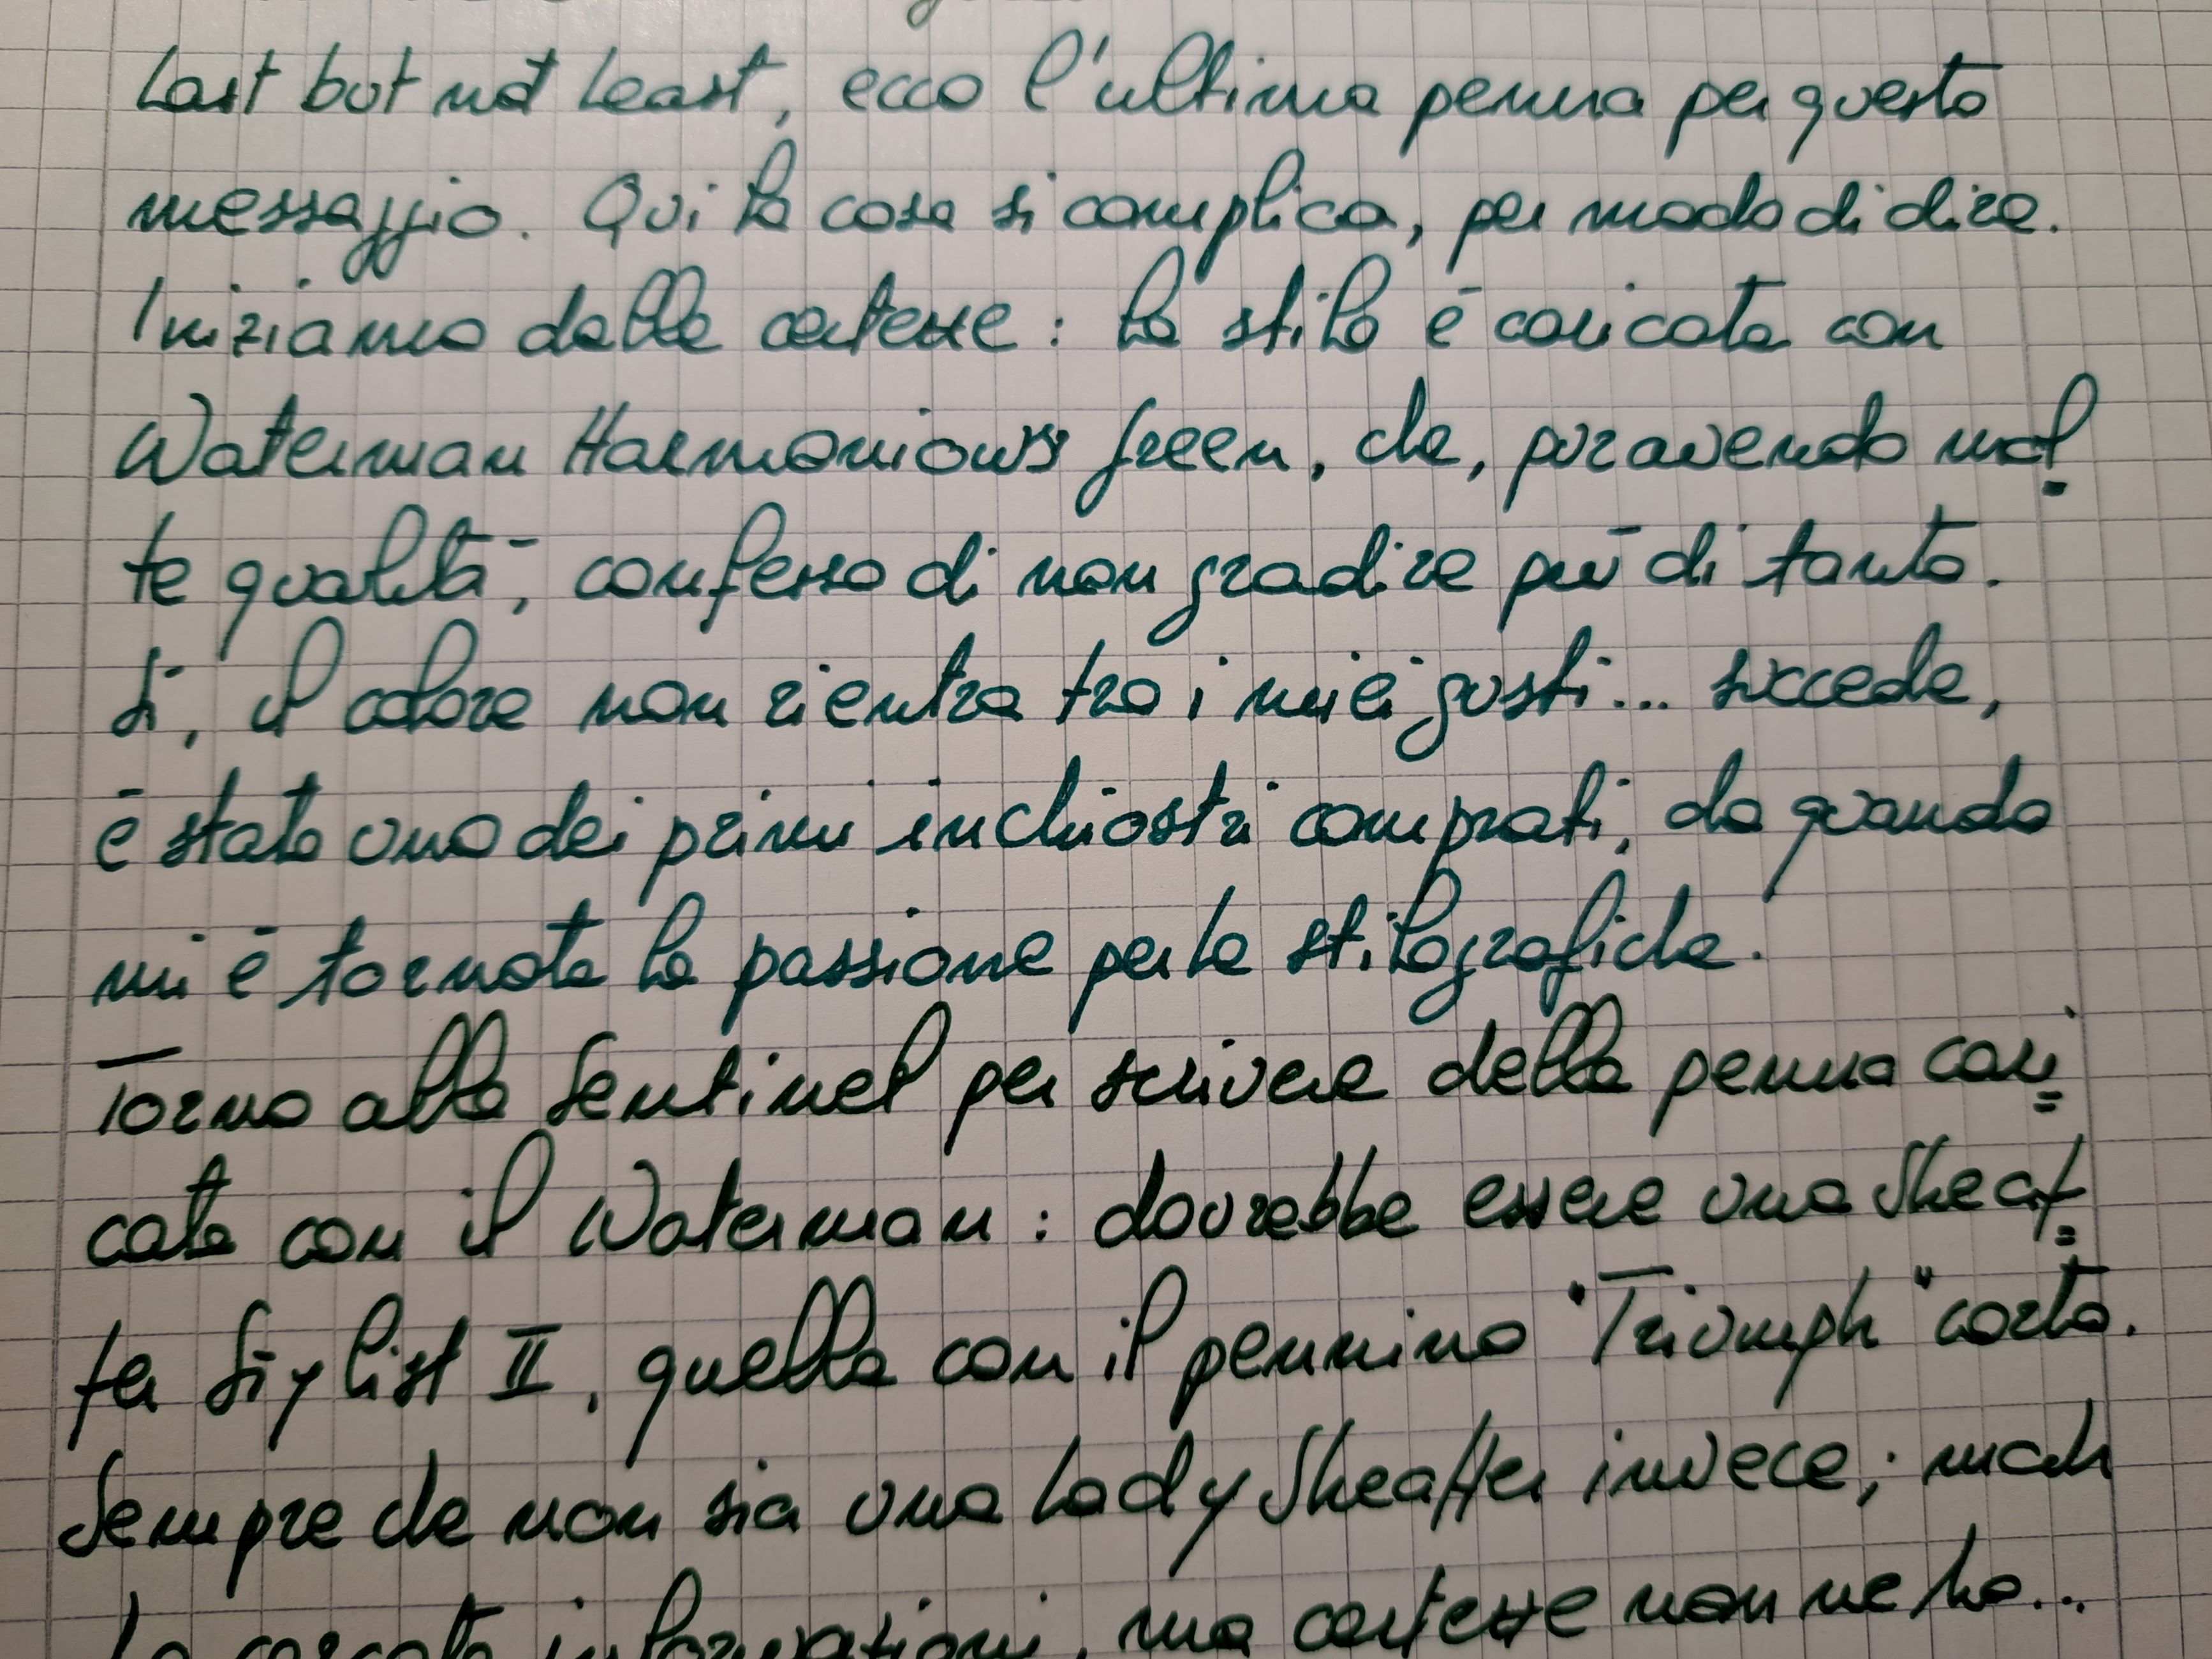 Last but not least, ecco l'ultima penna per questo
messaggio. Qui la cosa si complica, per modo di dire.
Iniziamo dalle certezze: la stilo è caricata con
Waterman Harmonious Green, che, pur avendo mol
te qualità, confesso di non gradire più di tanto.
Sì, il colore non rientra tra i miei gusti... succede,
è stato uno dei primi inchiostri comprati, da quando
mi è tornata la passione per le stilografiche.
Torno alla Sentinel per scrivere della penna cari=
cata con il Waterman: dovrebbe essere una Sheaf=
fer Stylist II, quella con il pennino "Triumph" corto.
Sempre che non sia una Lady Sheaffer invece; mah
ho cercato informazioni, ma certezze non ne ho...